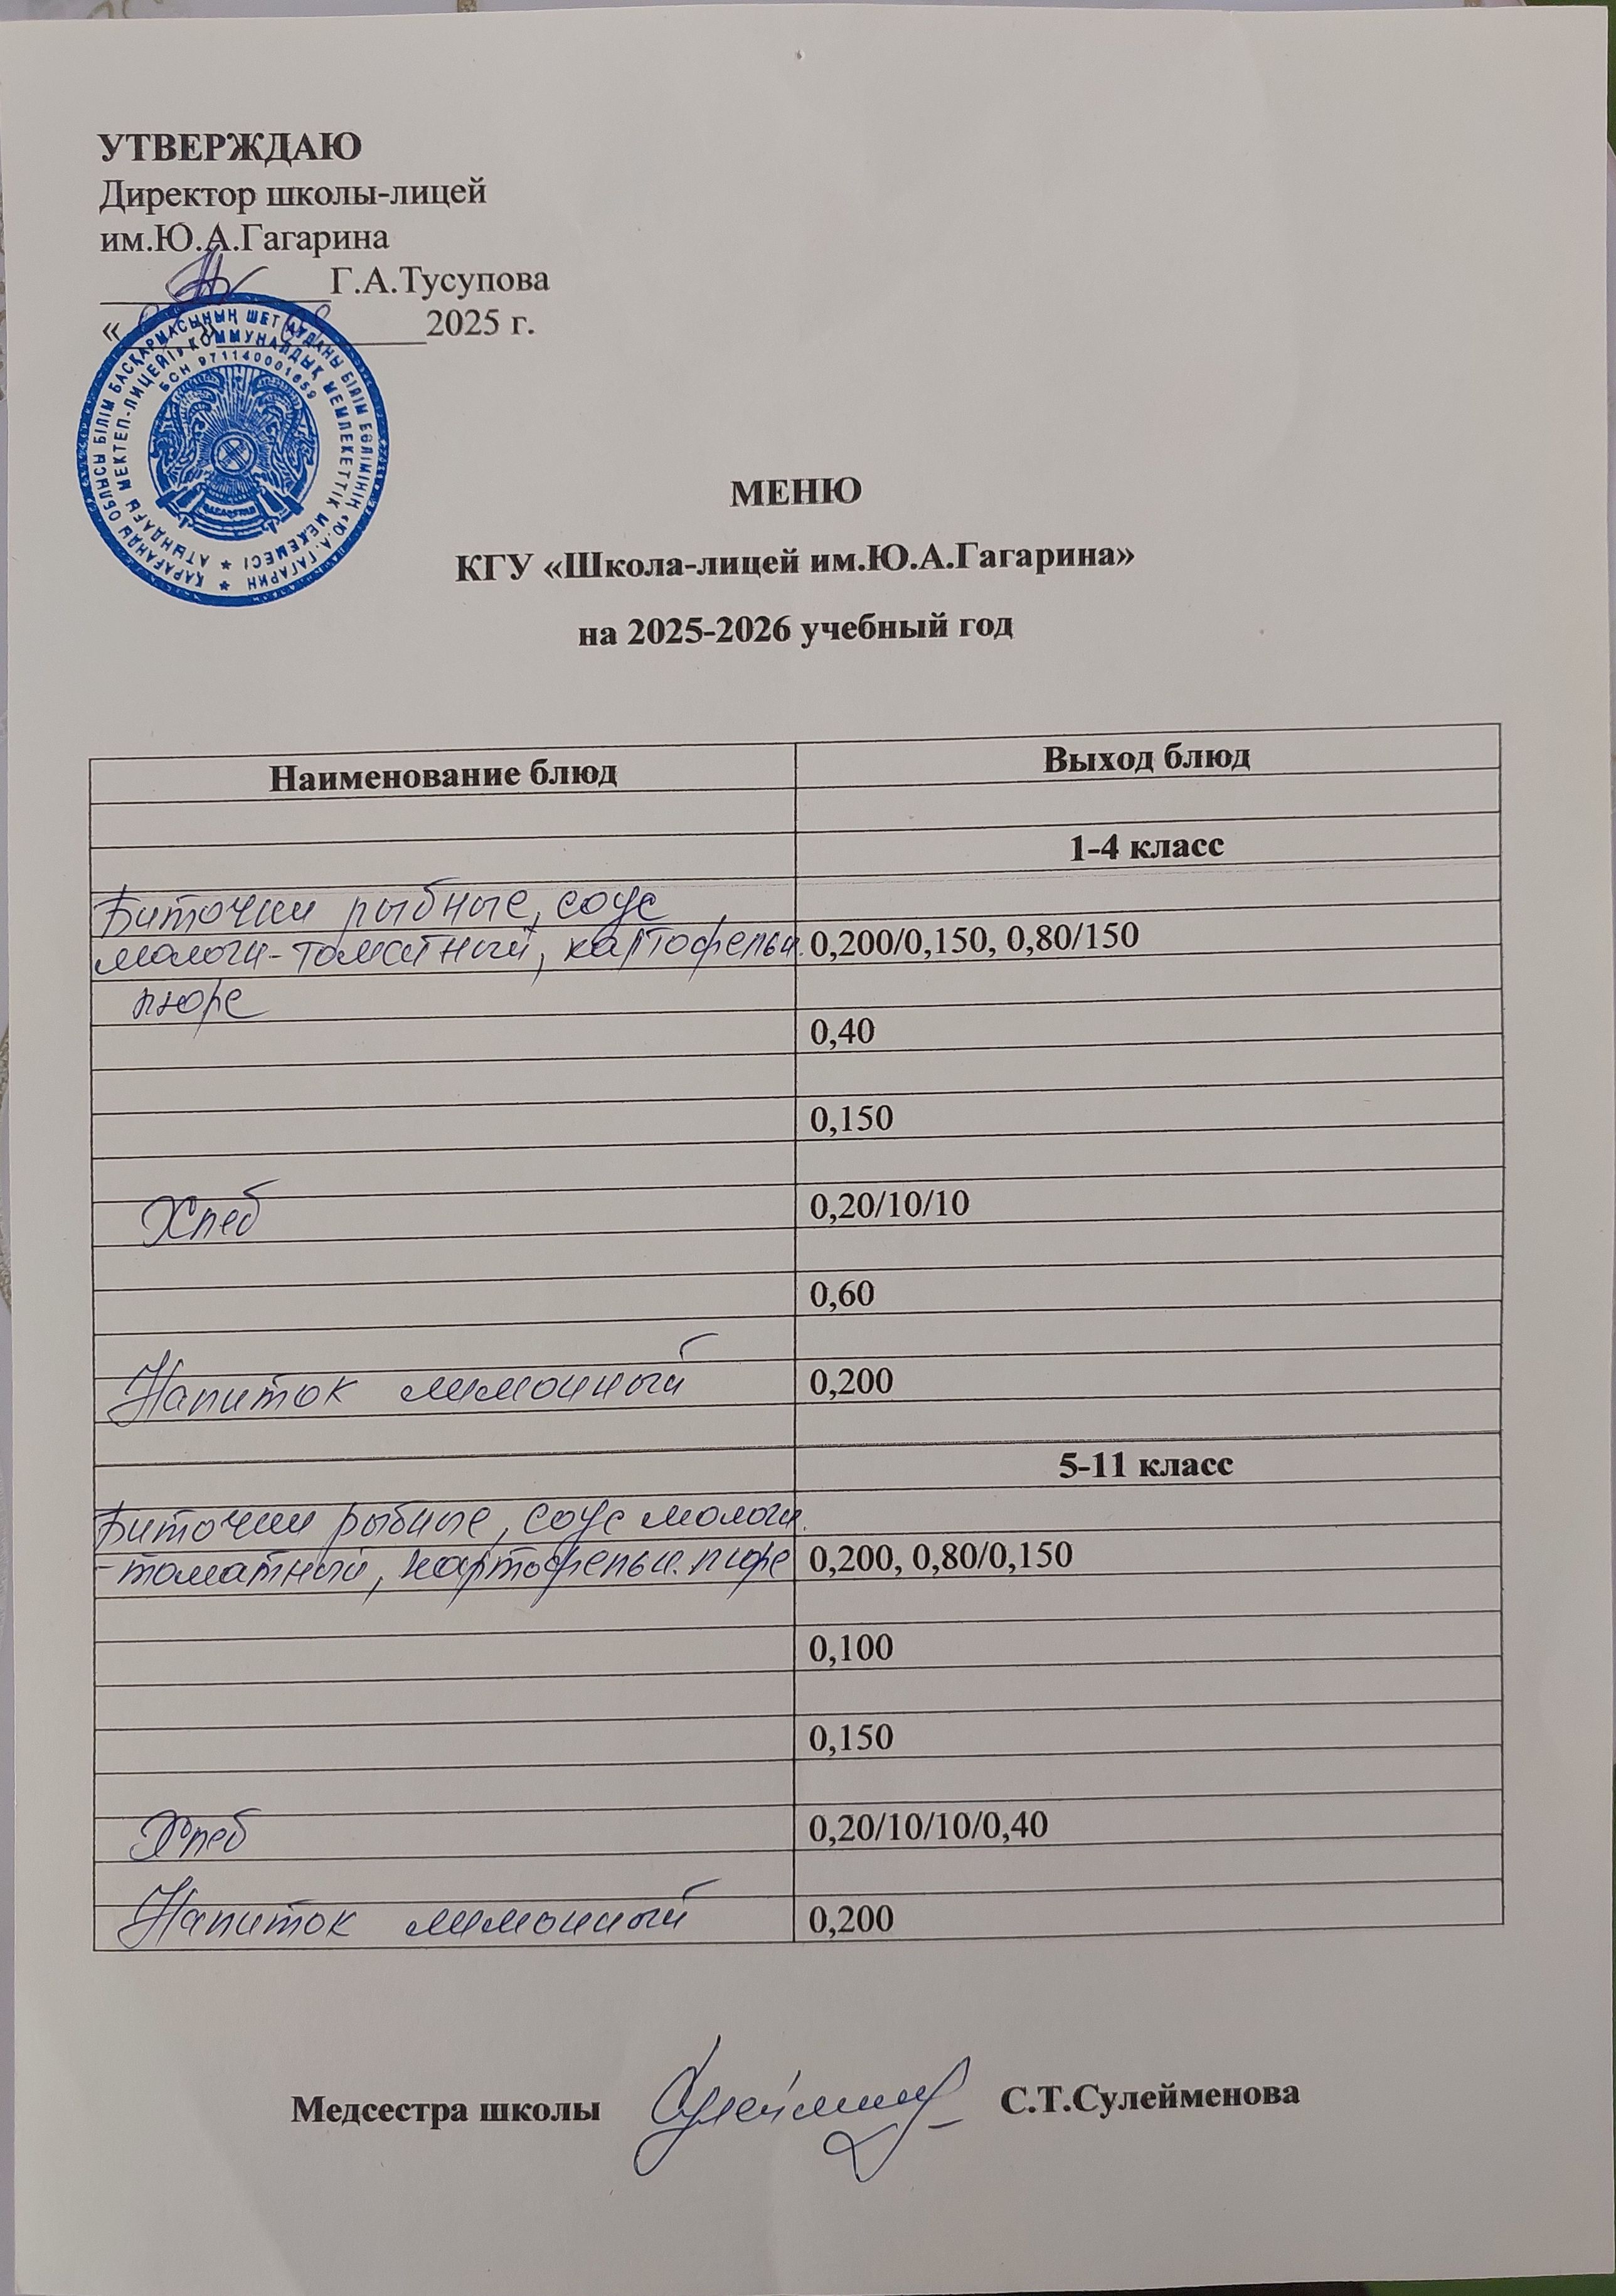 УТВЕРЖДАЮ
Директор школы-лицей
им.Ю.А.Гагарина
Г.А.Тусупова
« » 2025 г.
ҚАРАҒАНДЫ ОБЛЫСЫ БІЛІМ БАСҚАРМАСЫНЫҢ ШЕТ АУДАНЫ БІЛІМ БӨЛІМІНІҢ «Ю.А. ГАГАРИН
АТЫНДАҒЫ МЕКТЕП-ЛИЦЕЙІ» КОММУНАЛДЫҚ МЕМЛЕКЕТТІК МЕКЕМЕСІ
БСН 971140001659
МЕНЮ
КГУ «Школа-лицей им.Ю.А.Гагарина»
на 2025-2026 учебный год
Наименование блюд Выход блюд
1-4 класс
Биточки рыбные, соус
молочн-томатный, картофельн. 0,200/0,150, 0,80/150
пюре
0,40
0,150
Хлеб 0,20/10/10
0,60
Напиток лимонный 0,200
5-11 класс
Биточки рыбные, соус молочн.
-томатный, картофельн. пюре 0,200, 0,80/0,150
0,100
0,150
Хлеб 0,20/10/10/0,40
Напиток лимонный 0,200
Медсестра школы С.Т.Сулейменова